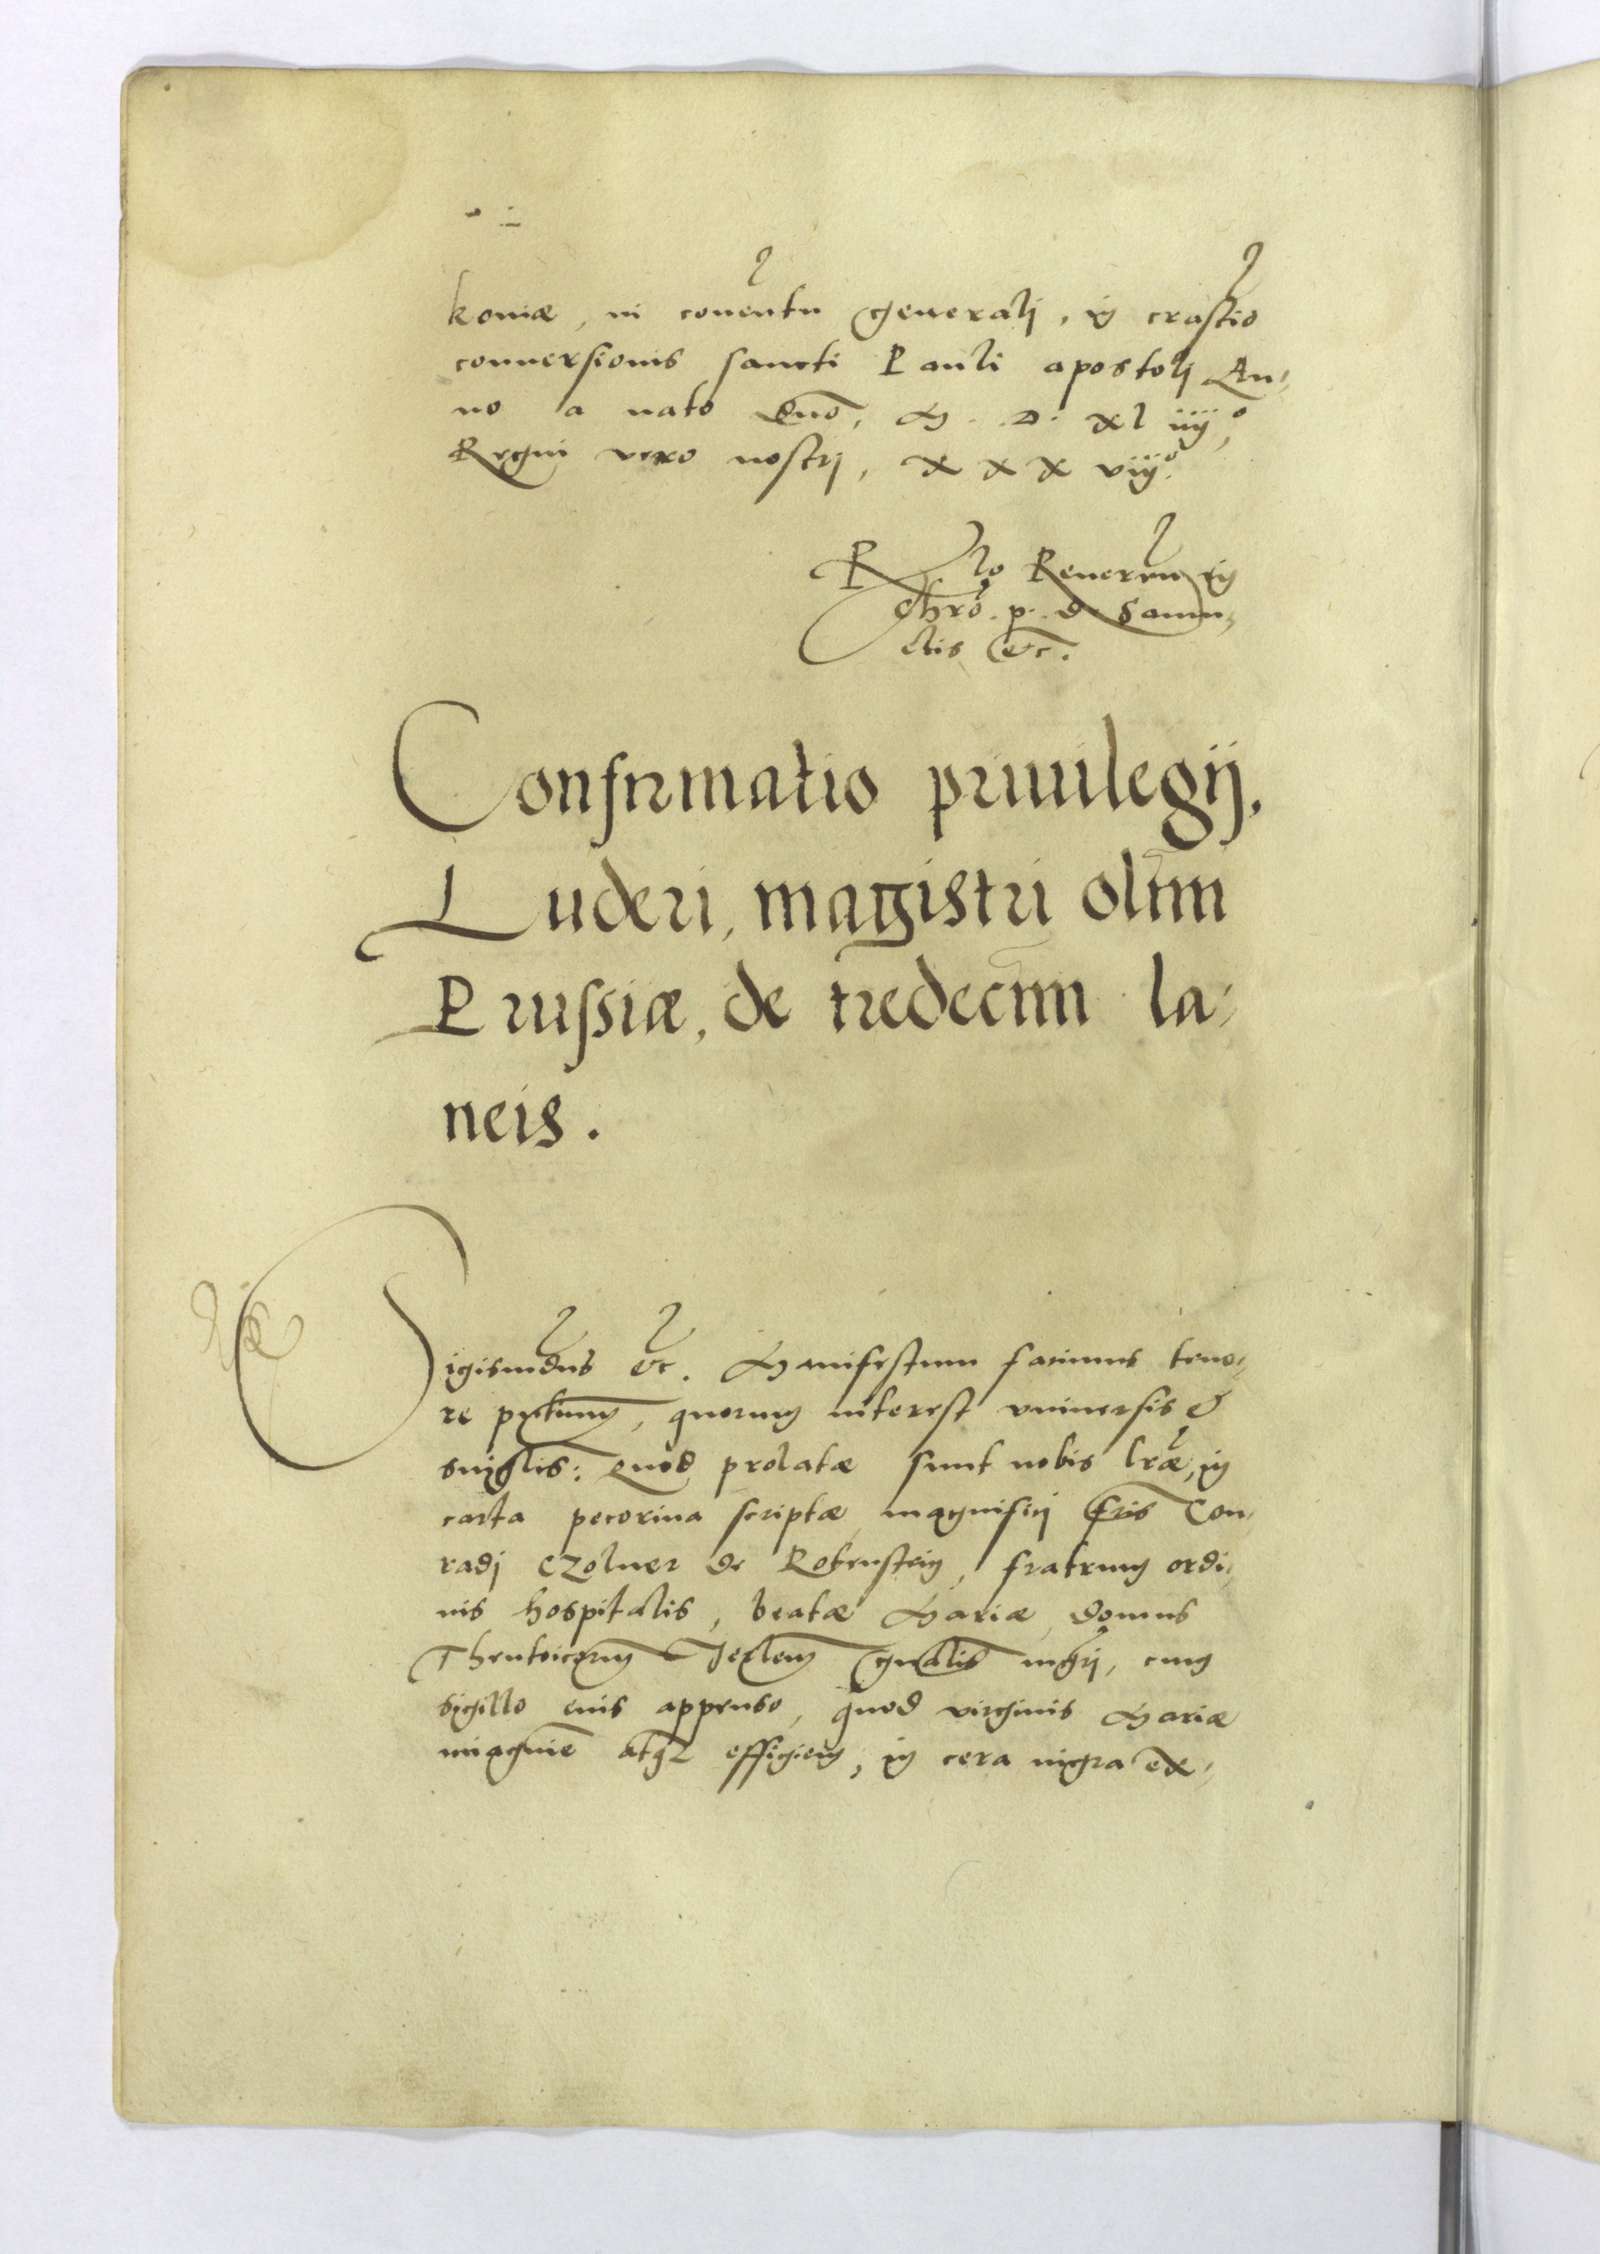 koniæ, in conuentu generalj, in crastio
conuersionis sancti Pauli apostolj An-
no a nato Dno, M. D. xl iiijo,
Regni vero nostrj, x x x viijo.
Rlo Reueren in
Chro. p. d. Samu-
elis etc.
Confirmatio priuilegij,
Luderi, magistri olim
Prussiæ, de tredecim la-
neis.
Sigismdus etc. Manifestum facimus teno-
re pntium, quorum interest vniuersis &
singlis: Quod prolatæ sunt nobis lræ, in
carta pecorina scriptæ, magnificj fris Con-
radj Czolner de Rotenstein, fratrum ordi-
nis hospitalis, beatæ Mariæ, domus
Theutoicorum Jerlem gnalis mgrj, cum
sigillo eius appenso, quod virginis Mariæ
imaginē atq effigiem, in cera nigra ex-